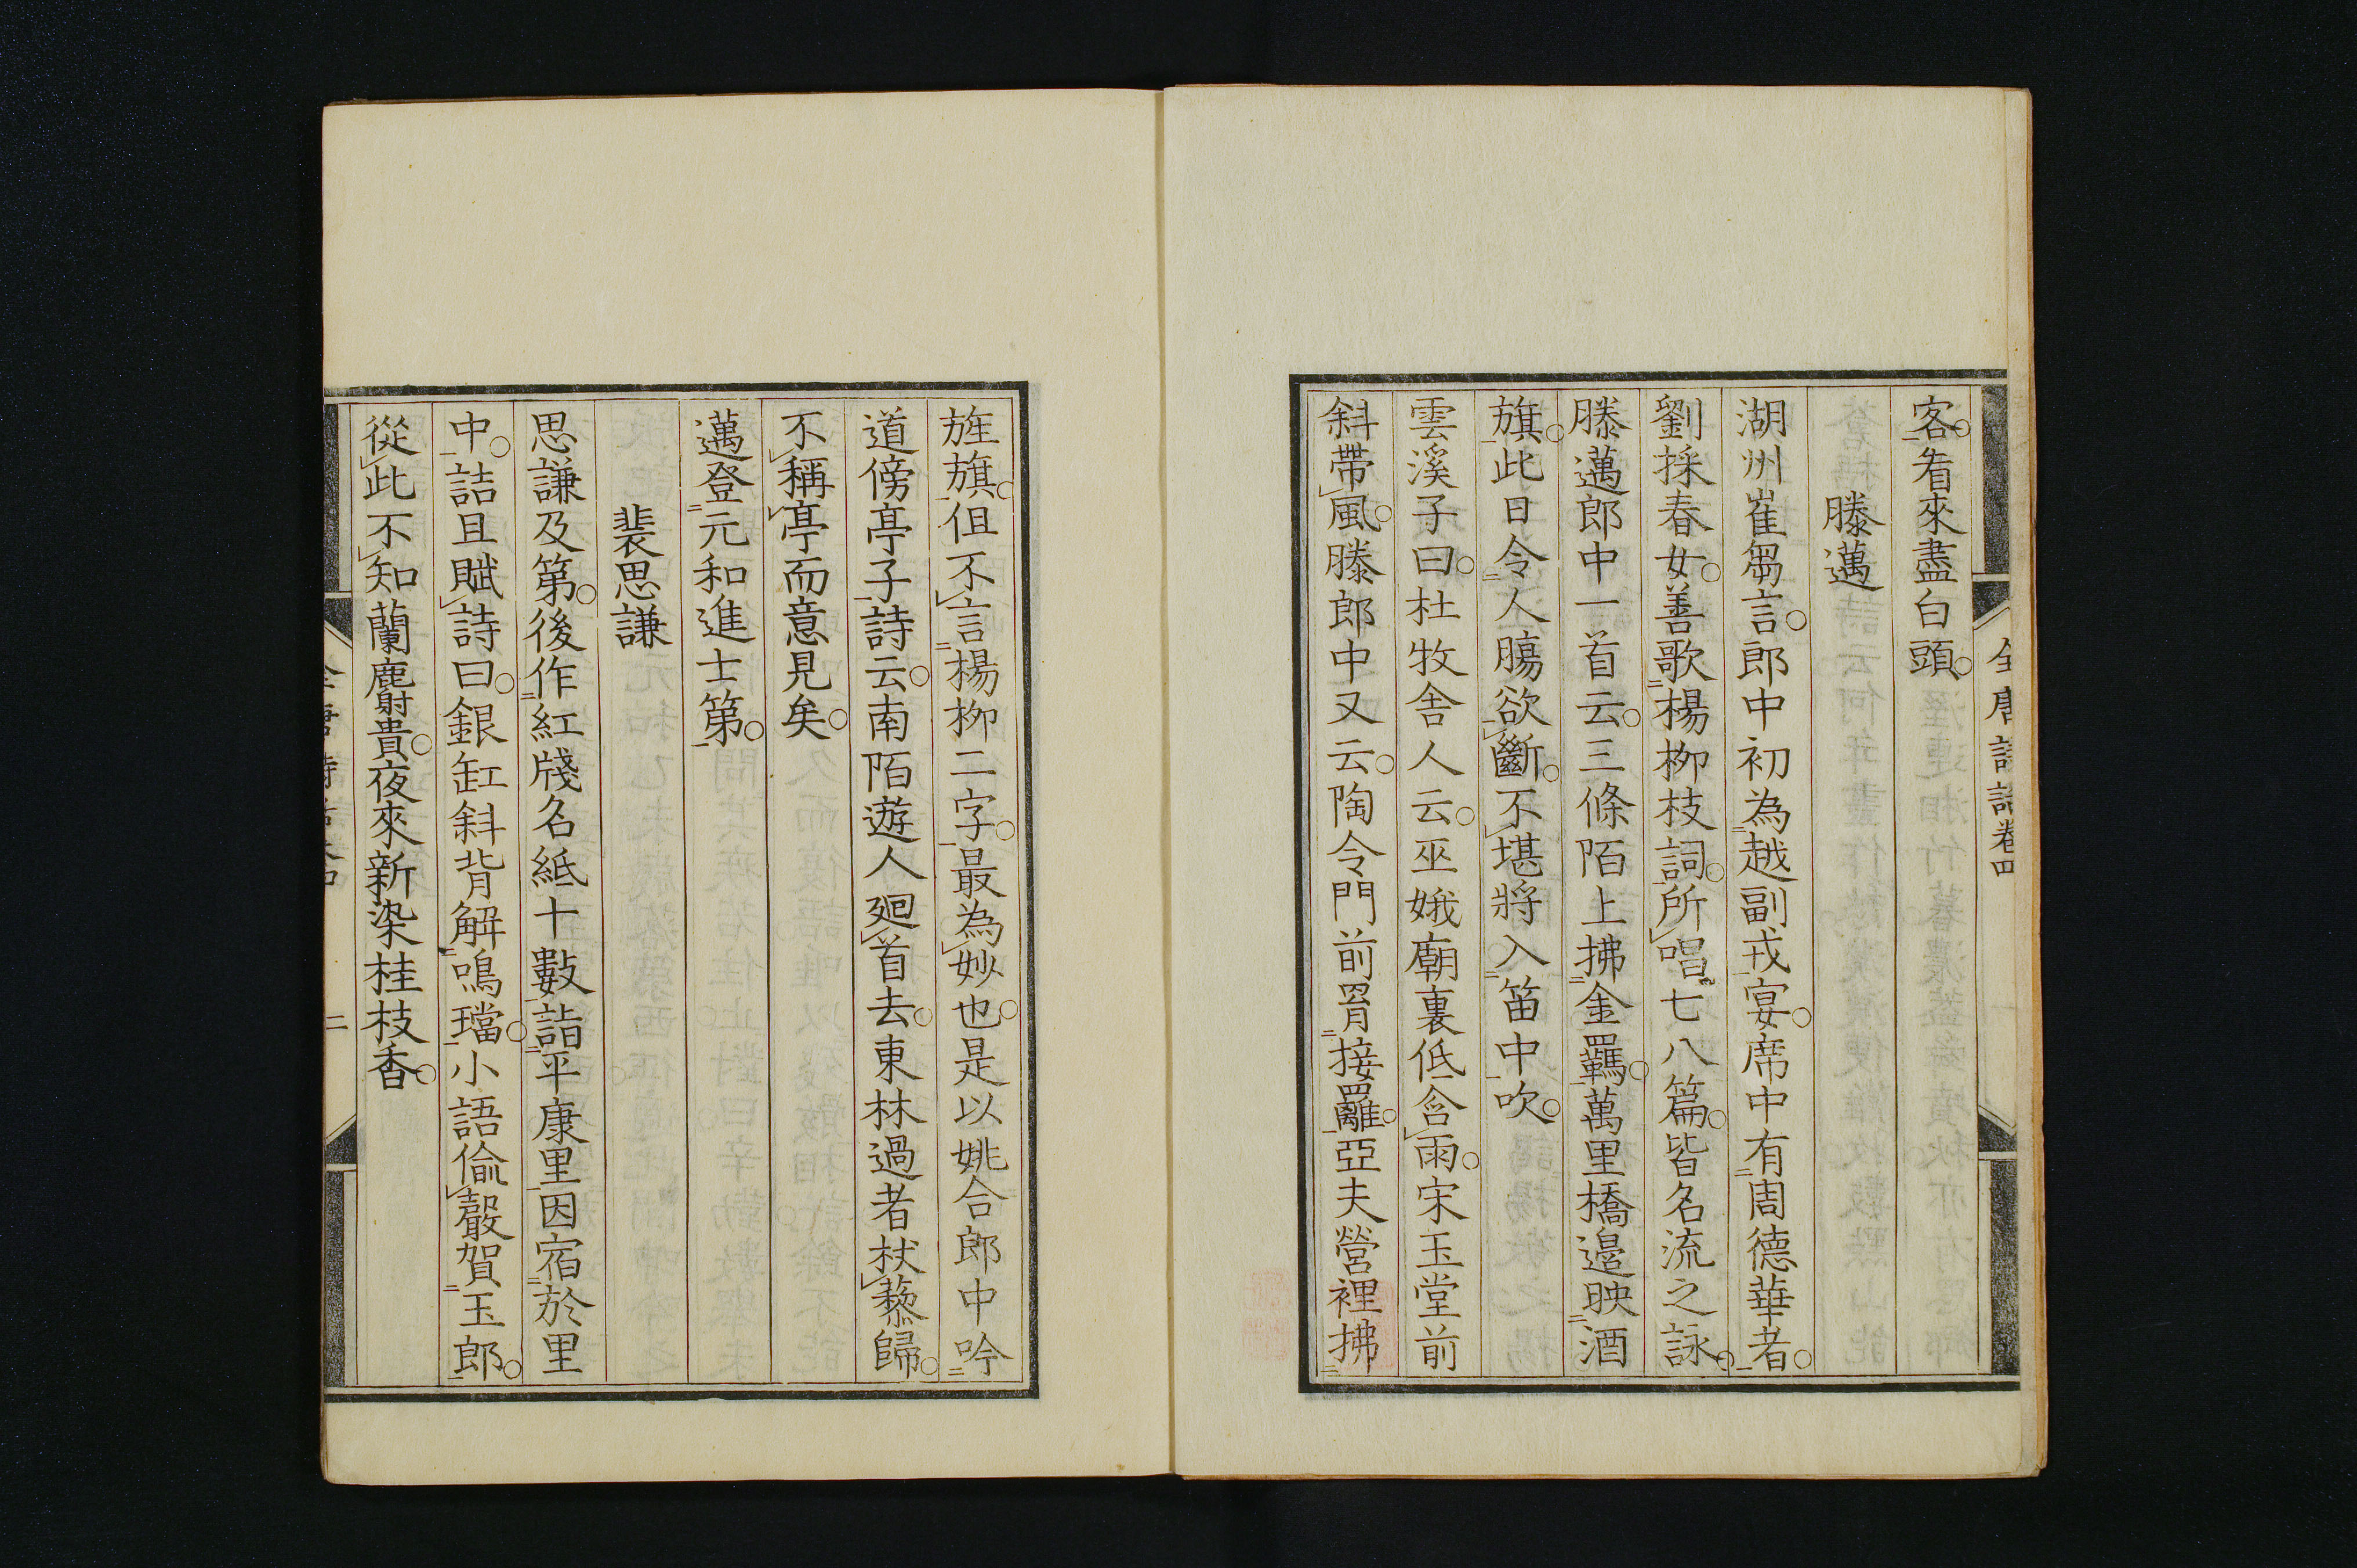 全唐詩話卷四
客看來盡白頭
滕邁
湖州崔芻言郎中初為越副戎宴席中有周德華者
劉採春女善歌楊柳枝詞所唱七八篇皆名流之詠
滕邁郎中一首云三條陌上拂金羈萬里橋邉映酒
旗此日令人腸欲斷不堪將入笛中吹
雲溪子曰杜牧舍人云巫娥廟裏低含雨宋玉堂前
斜帶風滕郎中又云陶令門前罥接䍦亞夫營裡拂
旌旗但不言楊柳二字最為妙也是以姚合郎中吟
道傍亭子詩云南陌遊人廻首去東林過者杖藜歸
不稱亭而意見矣
邁登元和進士第
裴思謙
思謙及第後作紅牋名紙十數詣平康里因宿於里
中詰且賦詩曰銀缸斜背解鳴璫小語偷聲賀玉郎
從此不知蘭麝貴夜來新染桂枝香
二